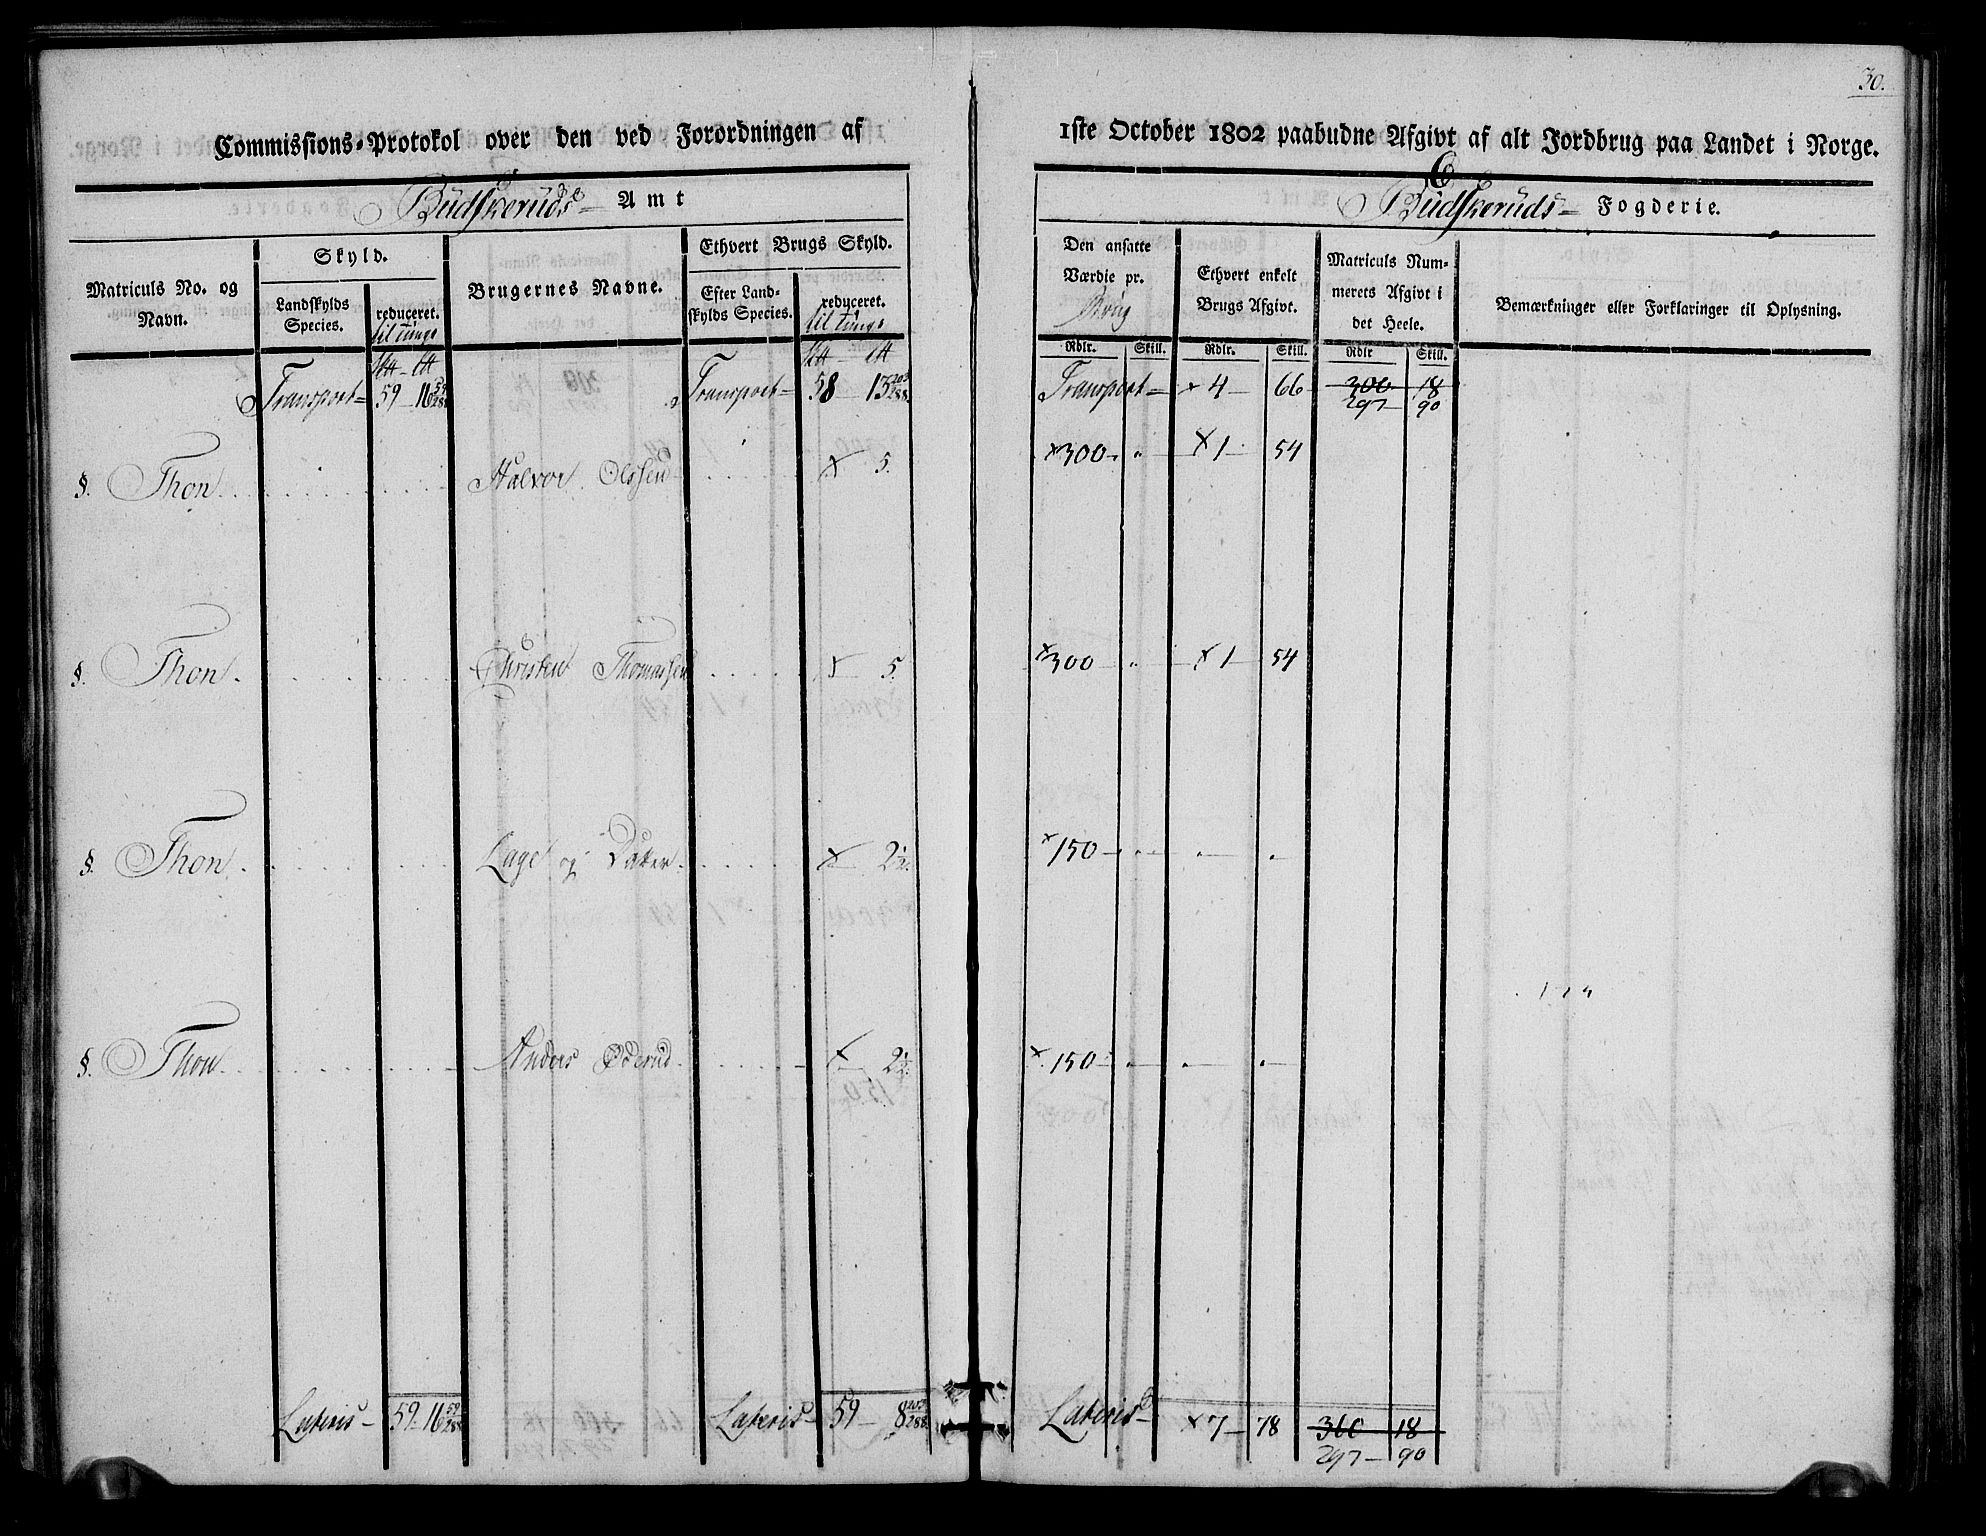 30.
Commissions-Protokol over den ved Forordningen af 1ste October 1802 paabudne Afgivt af alt Jordbrug paa Landet i Norge.
Budskeruds Amt
Budskeruds Fogderie.
Matriculs No. og Navn.
Skyld.
Landskylds Species.
reduceret. til tunge
Brugernes Navne.
Ethvert Brugs Skyld.
Efter Landskylds Species.
reduceret. til tunge
Den ansatte Værdie pr. Brug
Ethvert enkelt Brugs Afgivt.
Matriculs Nummerets Afgivt i det Heele.
Bemærkninger eller Forklaringer til Oplysning.
Rdlr. Skill. Rdlr. Skill. Rdlr Skill.
Transport 59 16 59/288 Transport 58 13 203/288 Transport × 4 66 300 18
297 90
§. Thon Halvor Olssen × 5. ×300 " ×1 54
§. Thon Christen Thomassen × 5. ×300 " ×1 54
§. Thon Lage og × 2½. ×150
§. Thon Anders Øderud × 2½. ×150
Lateris 59 16 59/288 Lateris 59 8 203/288 Lateris ×7 78 300 18
297 90